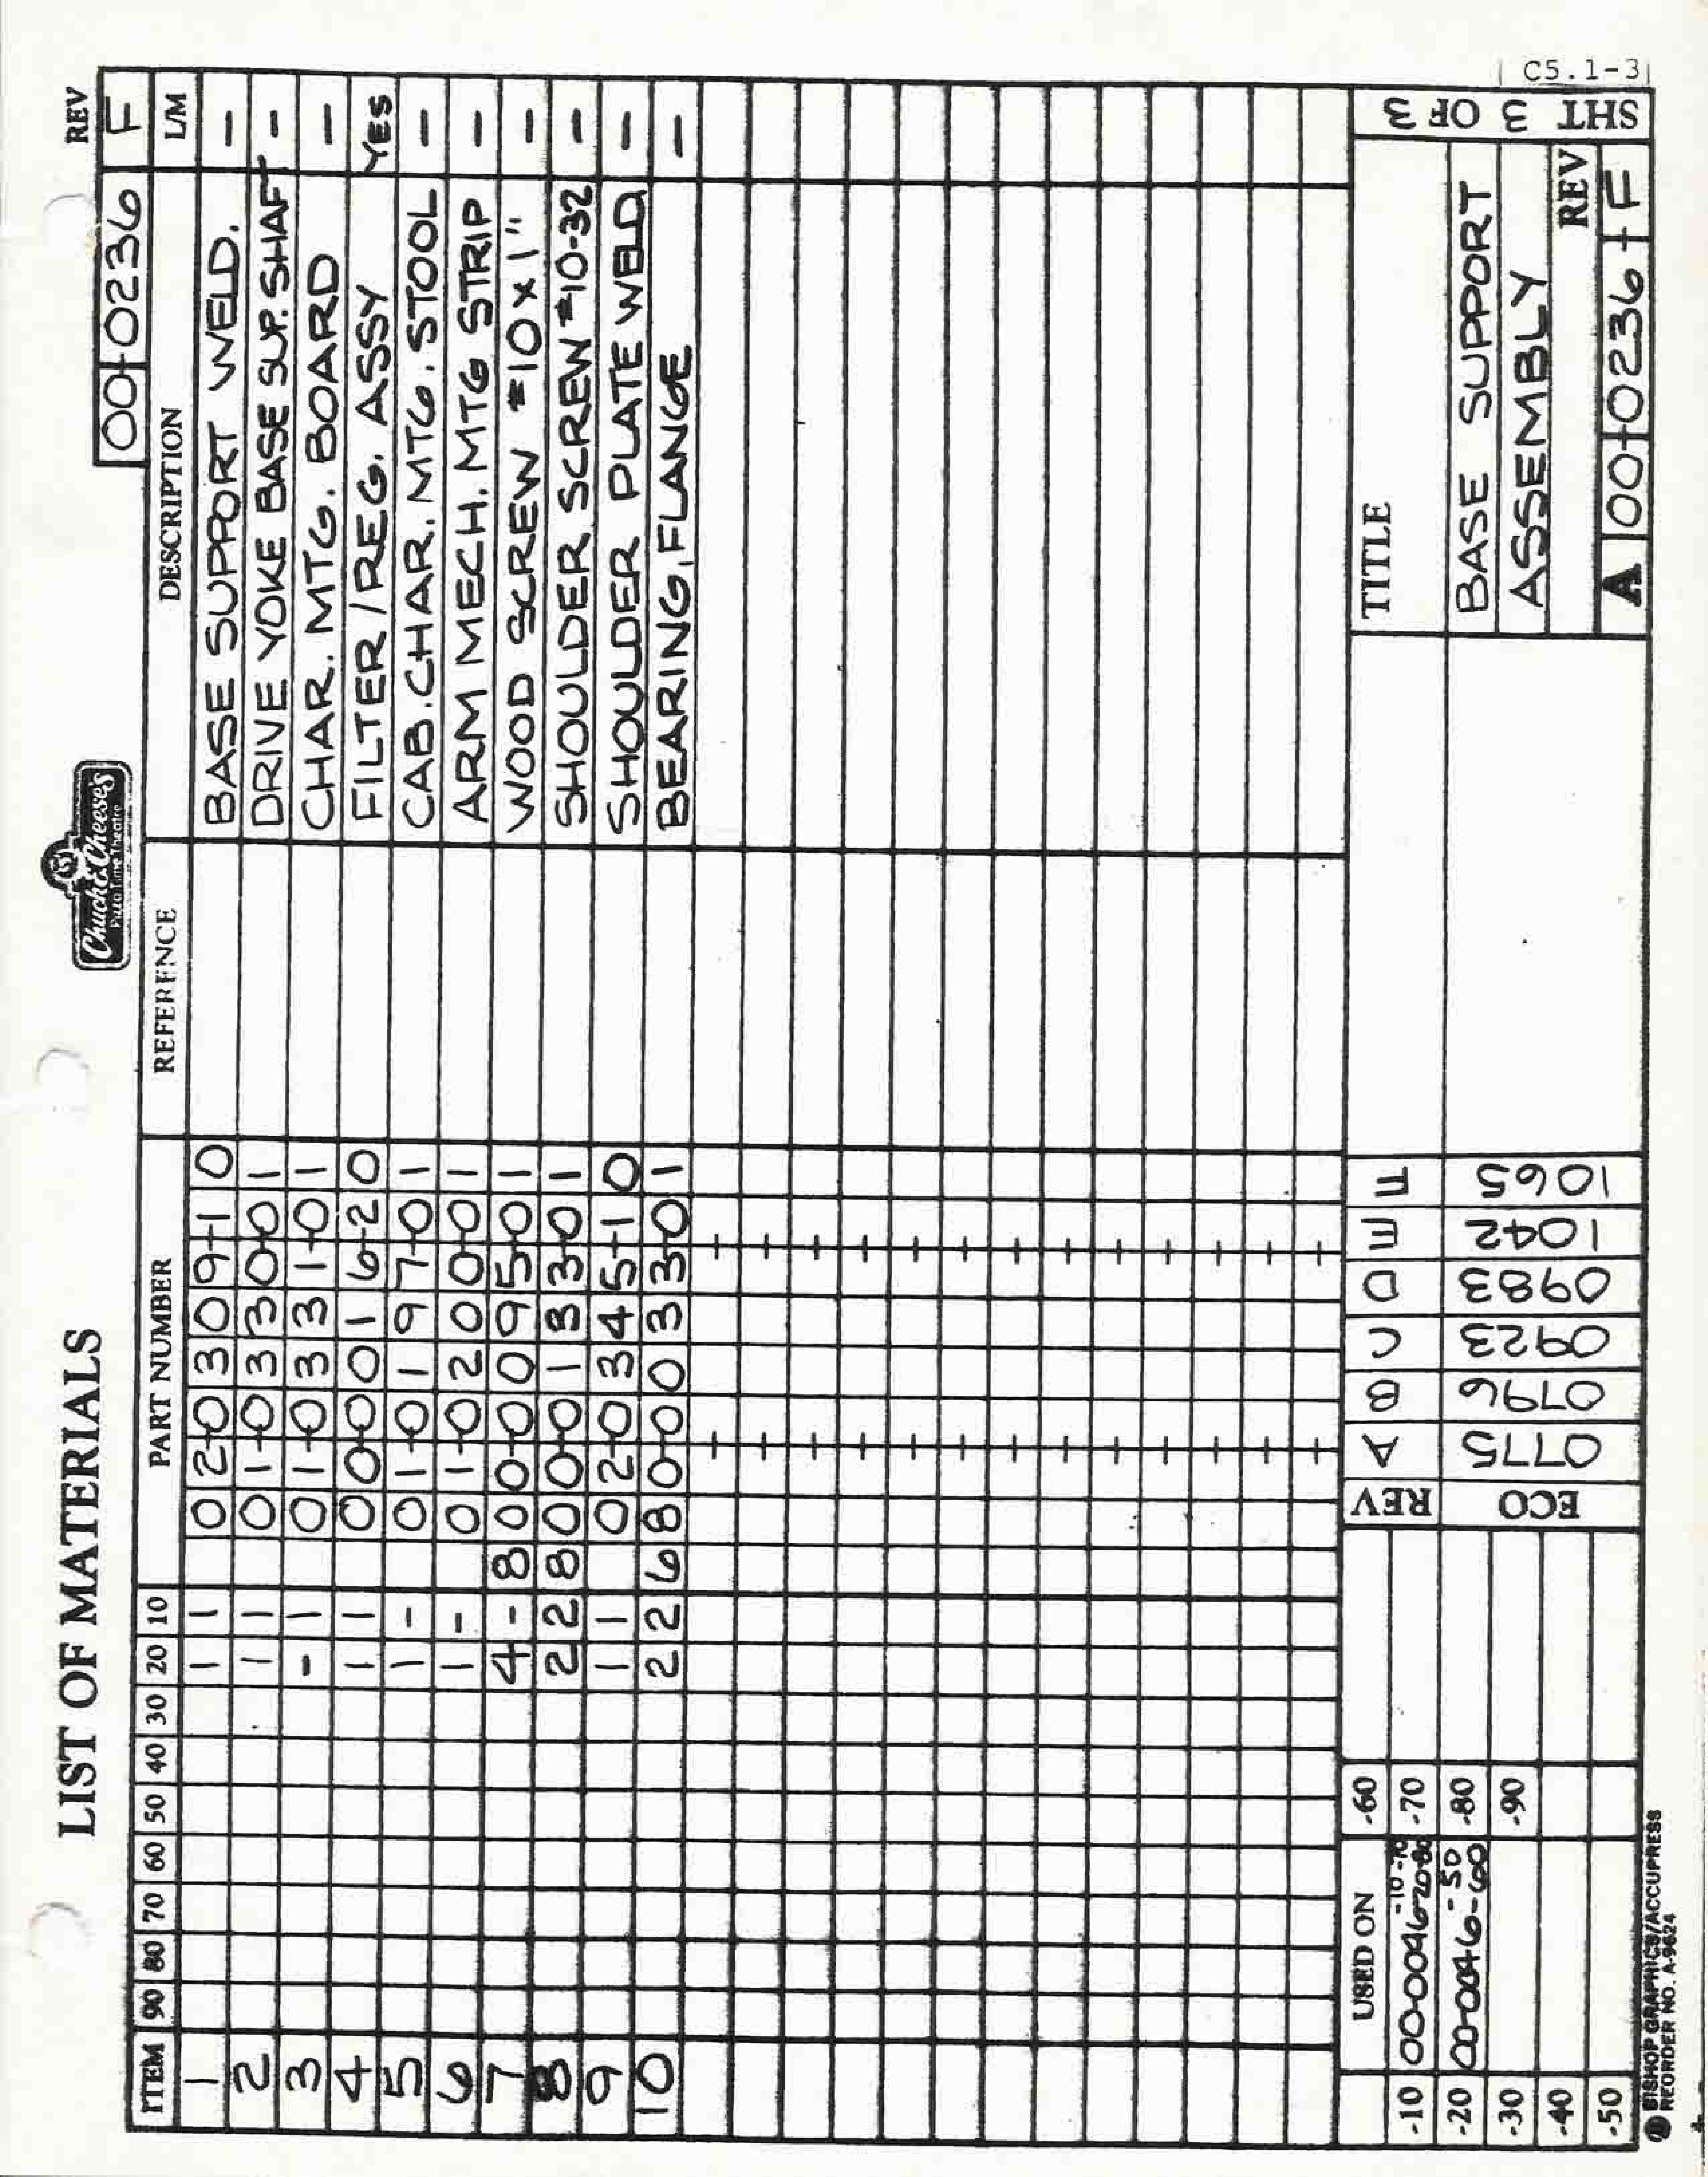 C5.1-3
LIST OF MATERIALS
Chuck E. Cheese's
Pizza Time Theatre
REV
00-0236 F
ITEM 90 80 70 60 50 40 30 20 10 PART NUMBER REFERENCE DESCRIPTION L/M
1 1 1 02-0309-10 BASE SUPPORT WELD. -
2 1 1 01-0330-01 DRIVE YOKE BASE SUP. SHAFT -
3 - 1 01-0331-01 CHAR. MTG. BOARD -
4 1 1 00-0016-20 FILTER/REG. ASSY YES
5 1 - 01-0197-01 CAB. CHAR. MTG. STOOL -
6 1 - 01-0200-01 ARM MECH. MTG STRIP -
7 4 - 800-0095-01 WOOD SCREW #10 X 1" -
8 2 2 800-0133-01 SHOULDER SCREW #10-32 -
9 1 1 02-0345-10 SHOULDER PLATE WELD. -
10 2 2 680-0033-01 BEARING, FLANGE -
USED ON -60
-10 00-0046-10-70 -20-80 -70
-20 00-0046-50 -60 -80
-30 -90
-40
-50
REV A B C D E F
ECO 0775 0796 0923 0983 1042 1065
TITLE
BASE SUPPORT
ASSEMBLY
REV
A 00-0236-F
SHT 3 OF 3
BISHOP GRAPHICS/ACCUPRESS
REORDER NO. A-9624